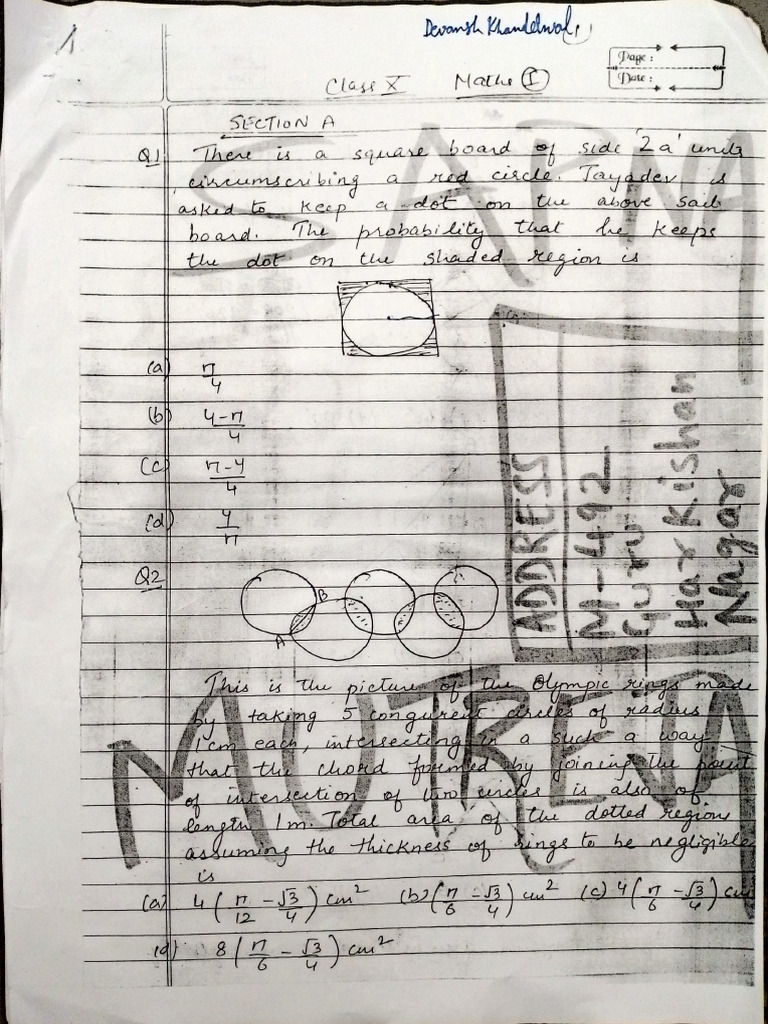 1
Devansh Khandelwal
Page :
Date :
Class X Maths (I)
SECTION A
Q1 There is a square board of side '2a' units
circumscribing a red circle. Jayadev is
asked to keep a dot on the above said
board. The probability that he keeps
the dot on the shaded region is
(a) π/4
(b) 4-π/4
(c) π-4/4
(d) 4/π
Q2
A B
This is the picture of the Olympic rings made
by taking 5 congurent circles of radius
1cm each, intersecting in a such a way
that the chord formed by joining the point
of intersection of two circles is also of
length 1m. Total area of the dotted region,
assuming the thickness of rings to be negligible
is
(a) 4(π/12 - √3/4) cm² (b) (π/6 - √3/4) cm² (c) 4(π/6 - √3/4) cm
(d) 8(π/6 - √3/4) cm²
ADDRESS
M-492
Guru
Har Kishan
Nagar